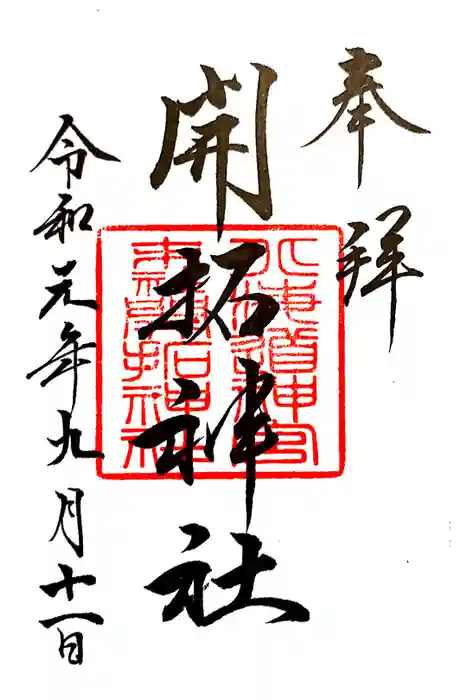 奉拝
開拓神社
北海道神宮
末社開拓神社
令和元年九月十一日